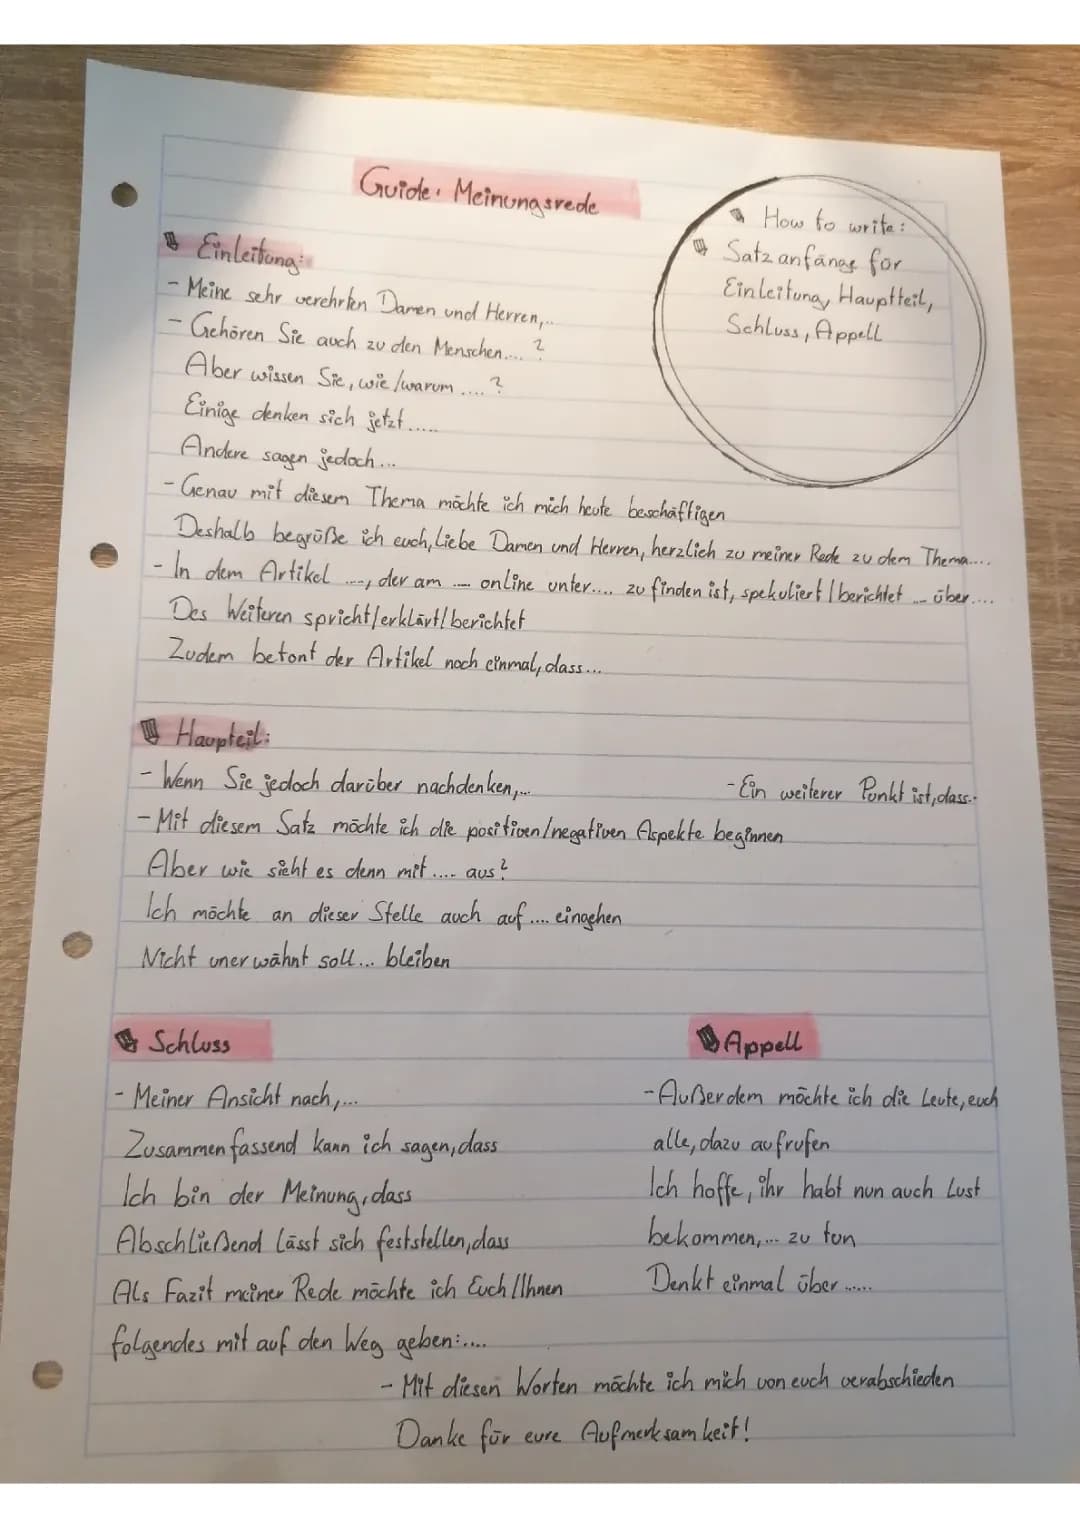 Guide: Meinungsrede
How to write:
Satzanfänge für
Einleitung, Hauptteil,
Schluss, Appell
Einleitung:
- Meine sehr verehrten Damen und Herren,..
- Gehören Sie auch zu den Menschen.... ?
Aber wissen Sie, wie/warum .... ?
Einige denken sich jetzt.....
Andere sagen jedoch...
- Genau mit diesem Thema möchte ich mich heute beschäftigen
Deshalb begrüße ich euch, liebe Damen und Herren, herzlich zu meiner Rede zu dem Thema....
- In dem Artikel ..., der am ... online unter.... zu finden ist, spekuliert/berichtet ... über....
Des Weiteren spricht/erklärt/berichtet
Zudem betont der Artikel noch einmal, dass...
Haupteil:
- Wenn Sie jedoch darüber nachdenken,...
- Ein weiterer Punkt ist, dass..
- Mit diesem Satz möchte ich die positiven/negativen Aspekte beginnen
Aber wie sieht es denn mit .... aus?
Ich möchte an dieser Stelle auch auf .... eingehen
Nicht unerwähnt soll... bleiben
Schluss
- Meiner Ansicht nach,...
Zusammenfassend kann ich sagen, dass
Ich bin der Meinung, dass
Abschließend lässt sich feststellen, dass
Als Fazit meiner Rede möchte ich Euch/Ihnen
folgendes mit auf den Weg geben:....
Appell
- Außerdem möchte ich die Leute, euch
alle, dazu aufrufen
Ich hoffe, ihr habt nun auch Lust
bekommen,... zu tun
Denkt einmal über .....
- Mit diesen Worten möchte ich mich von euch verabschieden
Danke für eure Aufmerksamkeit!